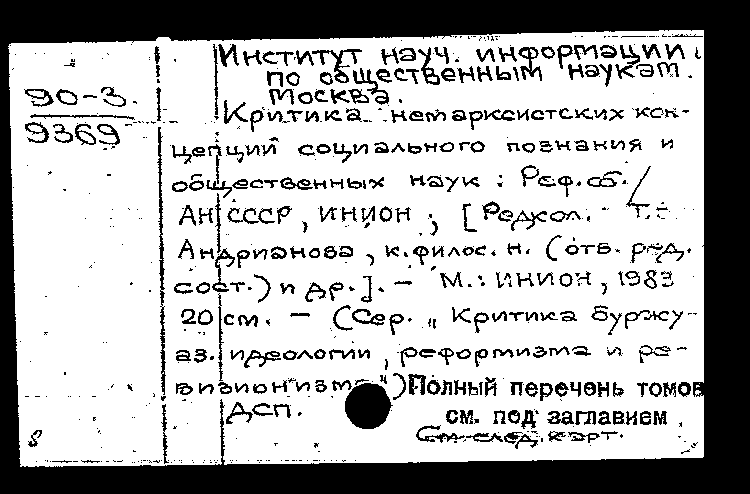 Институт науч. информации
по общественным наукам.
Москва.
90-3.
9369
Критика немарксистских кон-
цепций социального познания и
общественных наук : Реф.сб. /
АН СССР, ИНИОН ; [Редкол. Т.
Андрианова, к.филос.н. (отв. ред.
сост.) и др.]. – М.: ИНИОН, 1983
20 см. – (Сер. „Критика буржу-
аз. идеологии, реформизма и ре-
визионизма")
Полный перечень томов
ДСП.
см. под заглавием
См. след. карт.
8